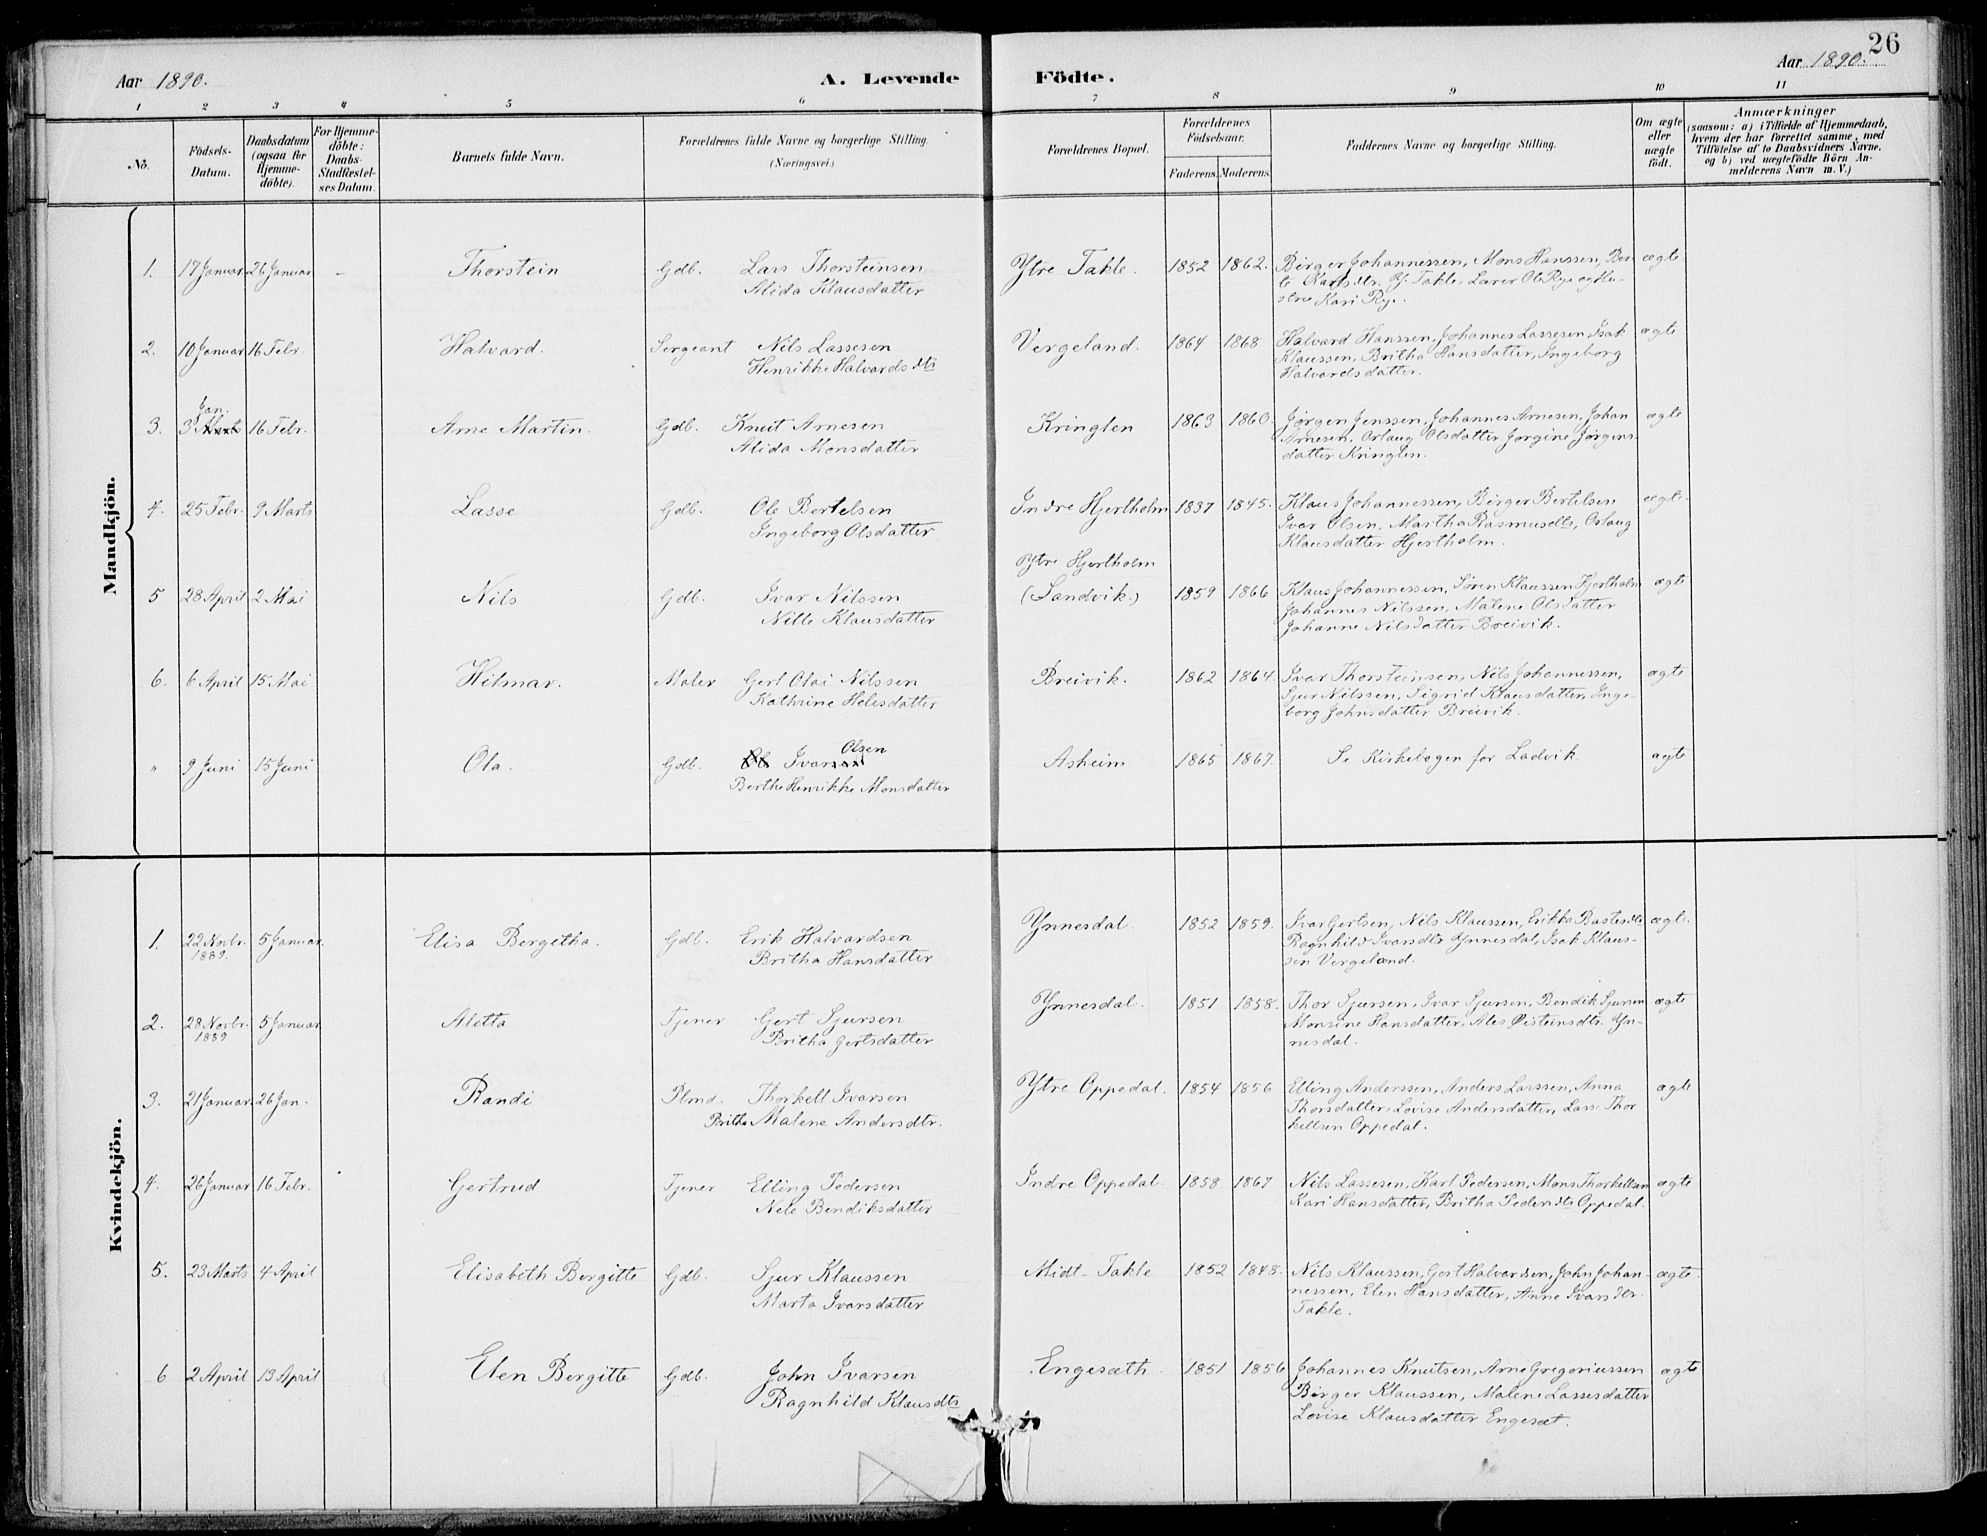 26
Aar 1890. A. Levende Födte. Aar 1890.
1 2 3 4 5 6 7 8 9 10 11
No. Födsels-Datum. Daabsdatum (ogsaa for Hjemme-döbte). For Hjemme-döbte: Daabs-Stadfæstel-ses Datum. Barnets fulde Navn. Forældrenes fulde Navne og borgerlige Stilling. (Næringsvei.) Forældrenes Bopæl. Forældrenes Födselsaar. Faderens. Moderens. Faddernes Navne og borgerlige Stilling. Om ægte eller uægte født. Anmærkninger
(saasom: a) i Tilfælde af Hjemmedaab,
hvem der har forrettet samme, med
Tilföielse af to Daabsvidners Navne,
og b) ved uægtefödte Börn An-
melderens Navn m. V.)
Mandkjön.
1. 17 Januar 26 Januar - Thorstein Gdb. Lars Thorsteinsen Ytre Takle. 1852 1862. Birger Johannessen, Mons Hanssen, Ber- ægte
Alida Klausdatter te Karlsdtr. Y. Takle, Lærer Ole Rye og Hu-
stru Kari Rye.
2. 10 Januar 16 Febr. Halvard. Sergeant Nils Lassesen Vergeland. 1864 1868 Halvard Hanssen, Johannes Lassesen, Isak ægte
Henrikke Halvardsdtr Klaussen, Britha Hansdatter, Ingeborg
Halvardsdatter.
3. 3 Jan. Marts 16 Febr. Arne Martin. Gdb. Knut Arnesen Kringlen 1863 1860. Jørgen Jenssen, Johannes Arnesen, Johan ægte
Alida Monsdatter Arnesen, Orlaug Olsdatter Jørgine Jørgens-
datter Kringlen.
4. 25 Febr. 9 Marts Lasse Gdb. Ole Bertelsen Indre Hjertholm 1837 1845. Klaus Johannessen, Birger Bertelsen ægte.
Ingeborg Olsdatter Ivar Olsen, Martha Rasmusdtr, Orlaug
Klausdatter Hjertholm.
5 28 April 2 Mai Nils Gdb. Ivar Nilssen Ytre Hjertholm (Sandvik.) 1859 1866 Klaus Johannessen, Søren Klaussen Hjertholm ægte
Nille Klausdatter Johannes Nilssen, Malene Olsdatter
Johanne Nilsdatter Breivik.
6. 6 April 15 Mai Hilmar. Maler Gert Olai Nilssen Breivik. 1862 1864. Ivar Thorsteinsen, Nils Johannessen, ægte
Kathrine Helesdatter Sjur Nilssen, Sigrid Klausdatter, Inge-
borg Johnsdatter Breivik.
" 9 Juni 15 Juni Ola. Gdb. Ivar Olsen Asheim 1865 1867. Se Kirkebogen for Ladvik. ægte
Berthe Henrikke Monsdatter
Kvindekjön.
1. 22 Novbr. 1889. 5 Januar. Elisa Bergitha. Gdb. Erik Halvardsen Ynnesdal. 1852 1859. Ivar Gertsen, Nils Klaussen, Erikka Bastesdtr ægte.
Britha Hansdatter Ragnhild Ivarsdtr Ynnesdal, Isak Klaus-
sen Vergeland.
2. 28 Novbr. 1889 5 Januar Aletta Tjener Gert Sjursen Ynnesdal. 1851 1858. Thor Sjursen, Ivar Sjursen, Bendik Sjursen ægte
Britha Gertsdatter Monsine Hansdatter, Ales Øisteinsdtr. Yn-
nesdal.
3. 21 Januar 26 Jan. Randi Plmd. Thorkell Ivarsen Ytre Oppedal. 1854 1856 Elling Anderssen, Anders Larssen, Anna ægte
Britha Malene Andersdtr. Thorsdatter, Lovise Andersdatter, Lars Thor
kellsen Oppedal.
4. 26 Januar 16 Febr. Gertrud Tjener Elling Pedersen Indre Oppedal. 1858 1867 Nils Lassesen, Karl Pedersen, Mons Thorkellsen ægte
Nele Bendiksdatter Kari Hansdatter, Britha Pedersdtr Oppedal.
5. 23 Marts 4 April Elisabeth Bergitte Gdb. Sjur Klaussen Midt-Takle 1852 1848. Nils Klaussen, Gert Halvardsen, John Johan- ægte.
Marta Ivarsdatter nessen, Elen Hansdatter, Anne Ivarsdtr
Takle.
6 2 April 13 April Elen Bergitte Gdb. John Ivarsen Engesæth 1851 1856 Johannes Knutsen, Arne Gregoriussen ægte
Ragnhild Klausdtr Birger Klaussen, Malene Lassesdatter
Lovise Klausdatter Engesæt.